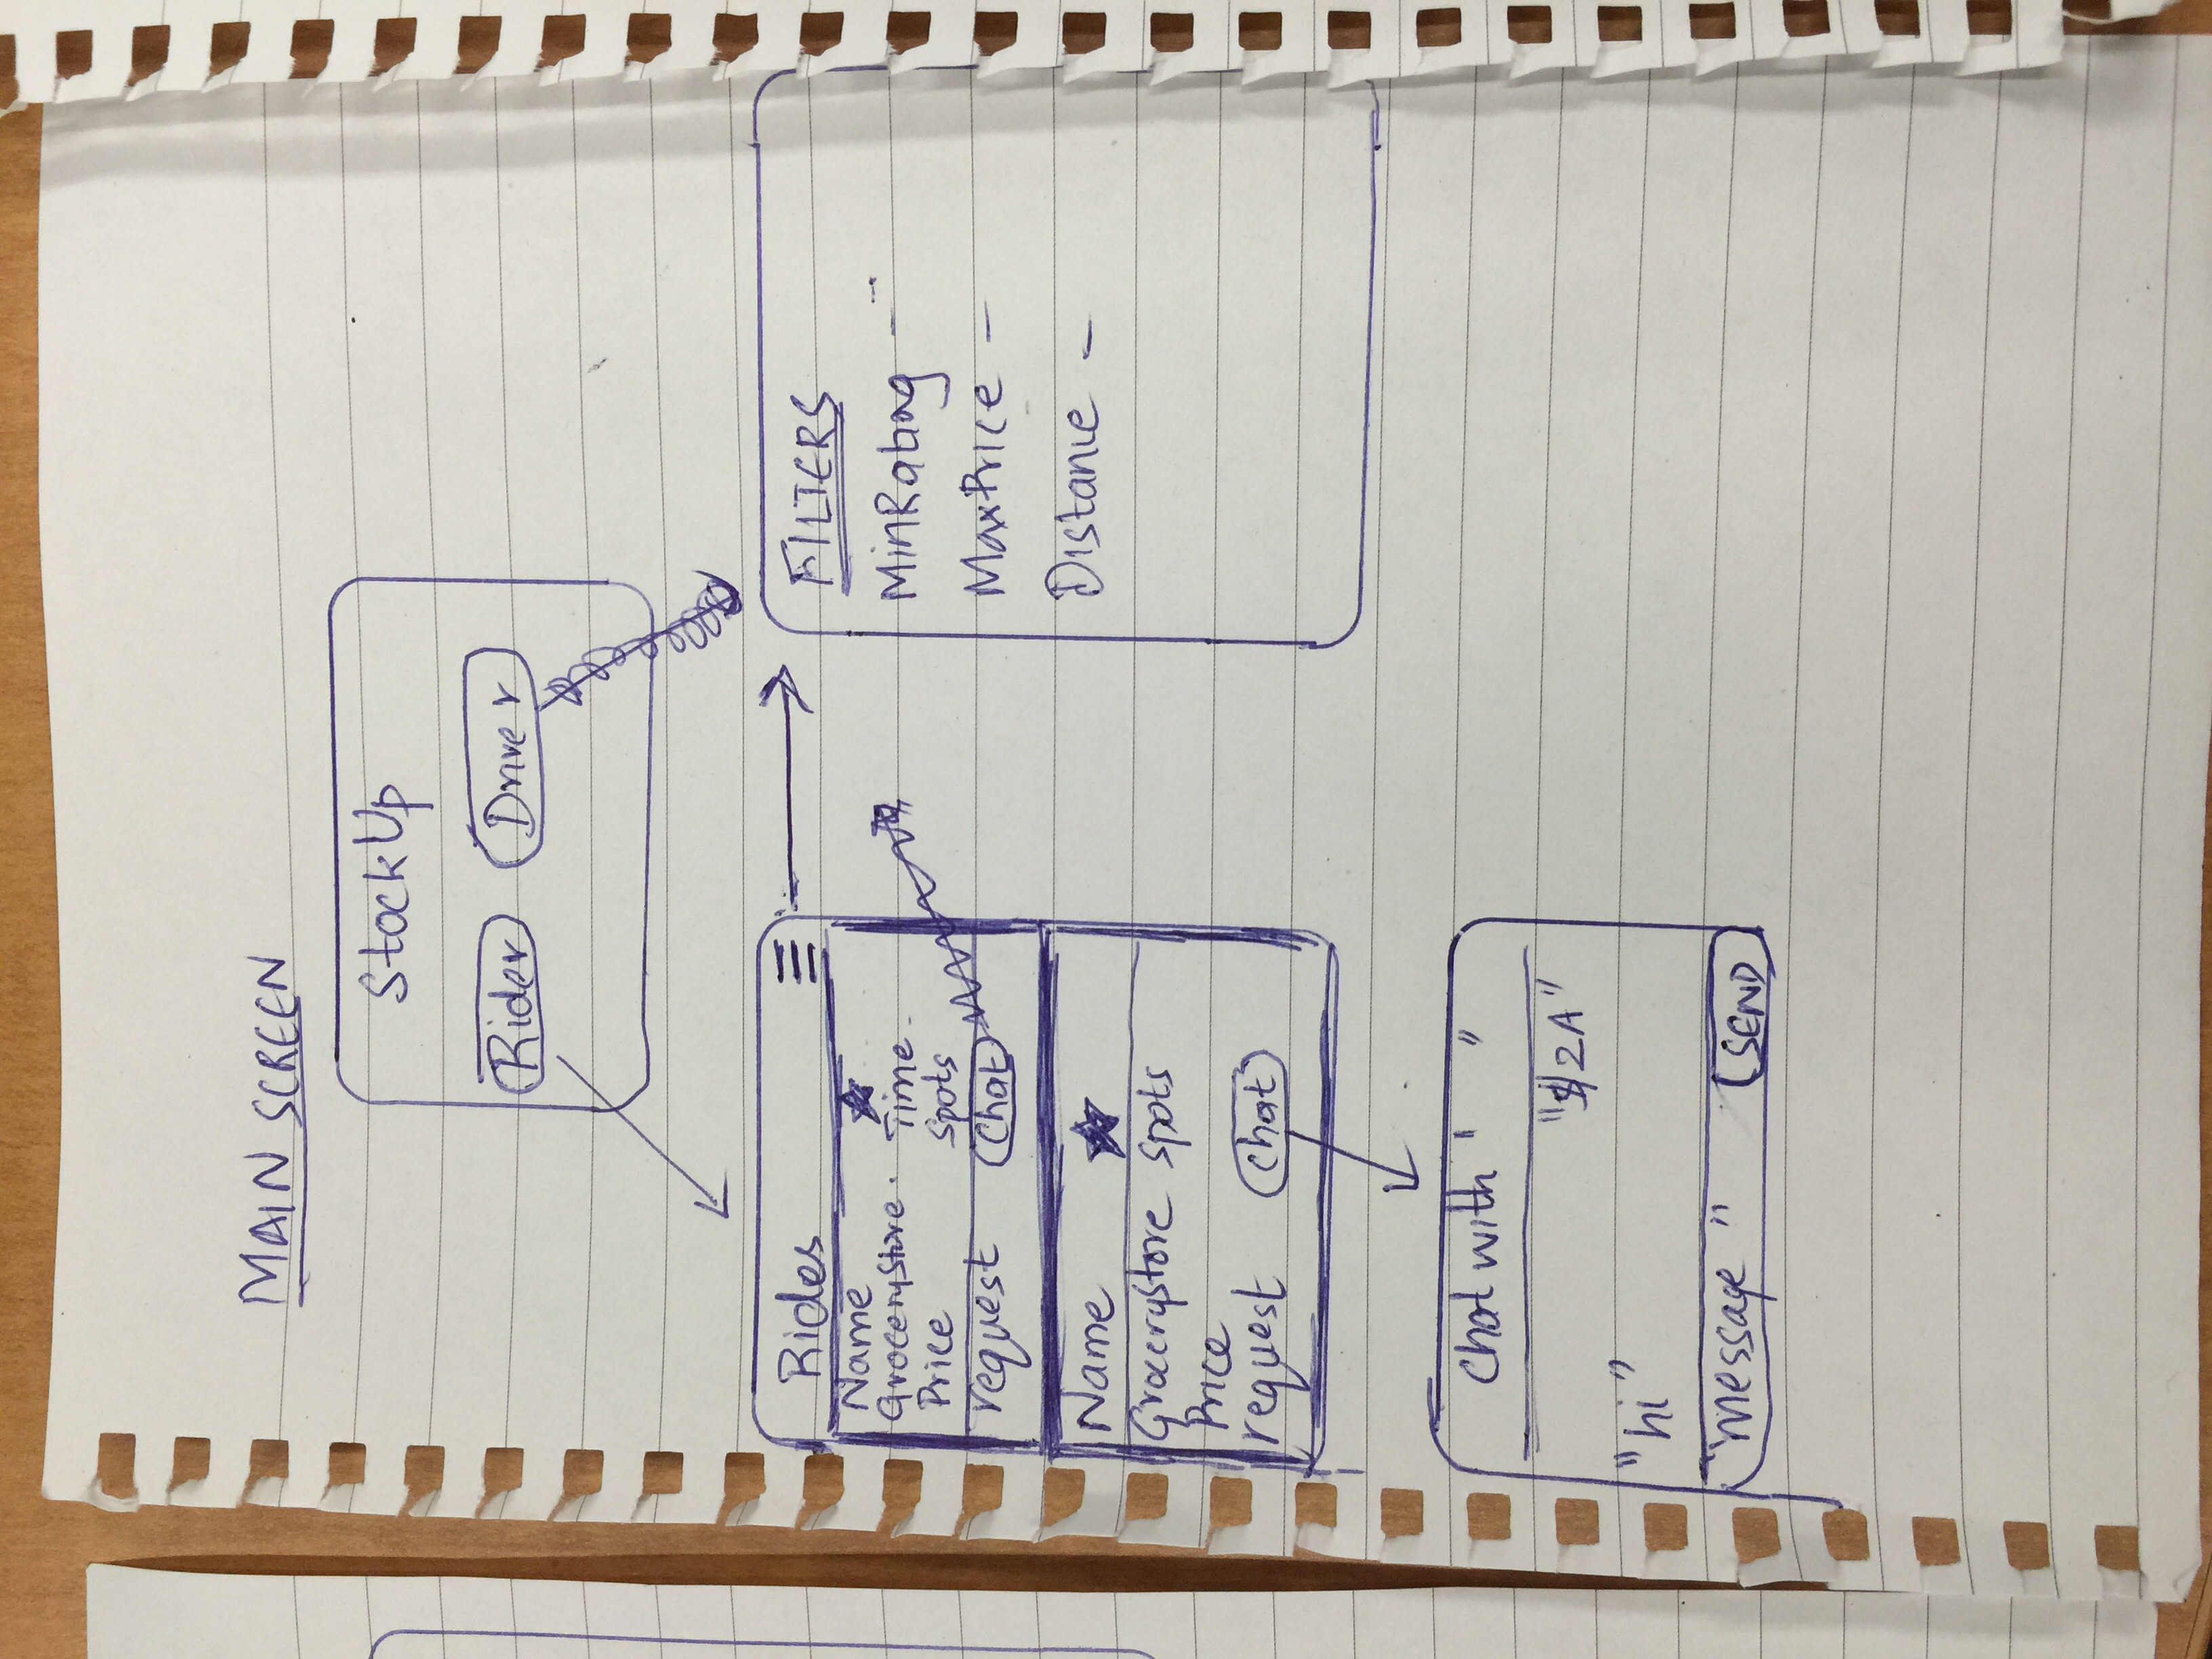 MAIN SCREEN
StockUp
Rider Driver
Rides
Name
GroceryStore Time
Price spots
request Chat
Name
GroceryStore spots
Price
request chat
FILTERS
MinRating -
MaxPrice -
Distance -
Chat with " "
"hi"
"message" SEND